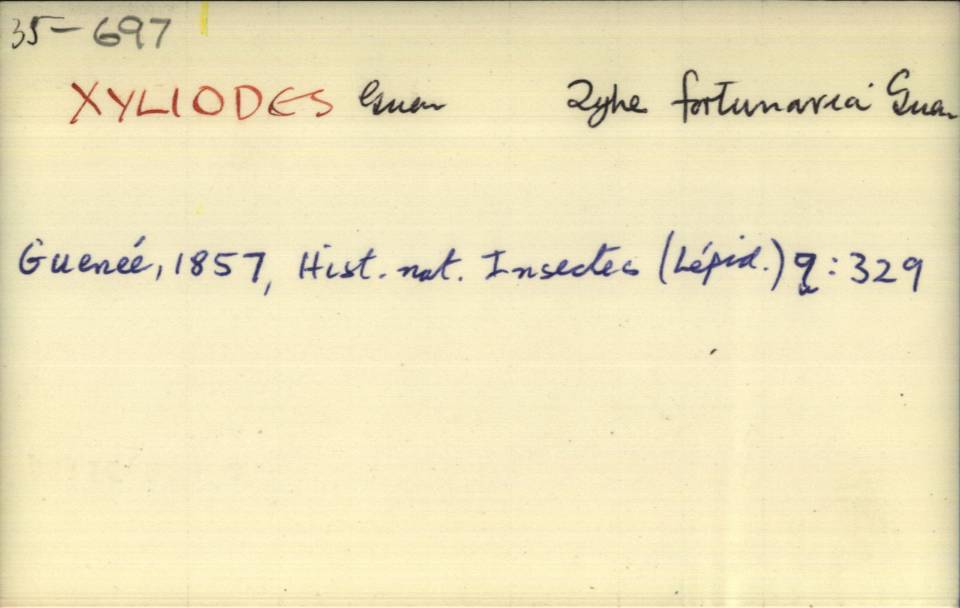 35-697
XYLIODES Guen Type fortunaria Guen
Gueneé, 1857, Hist. nat. Insectes (Lépid.) 9: 329